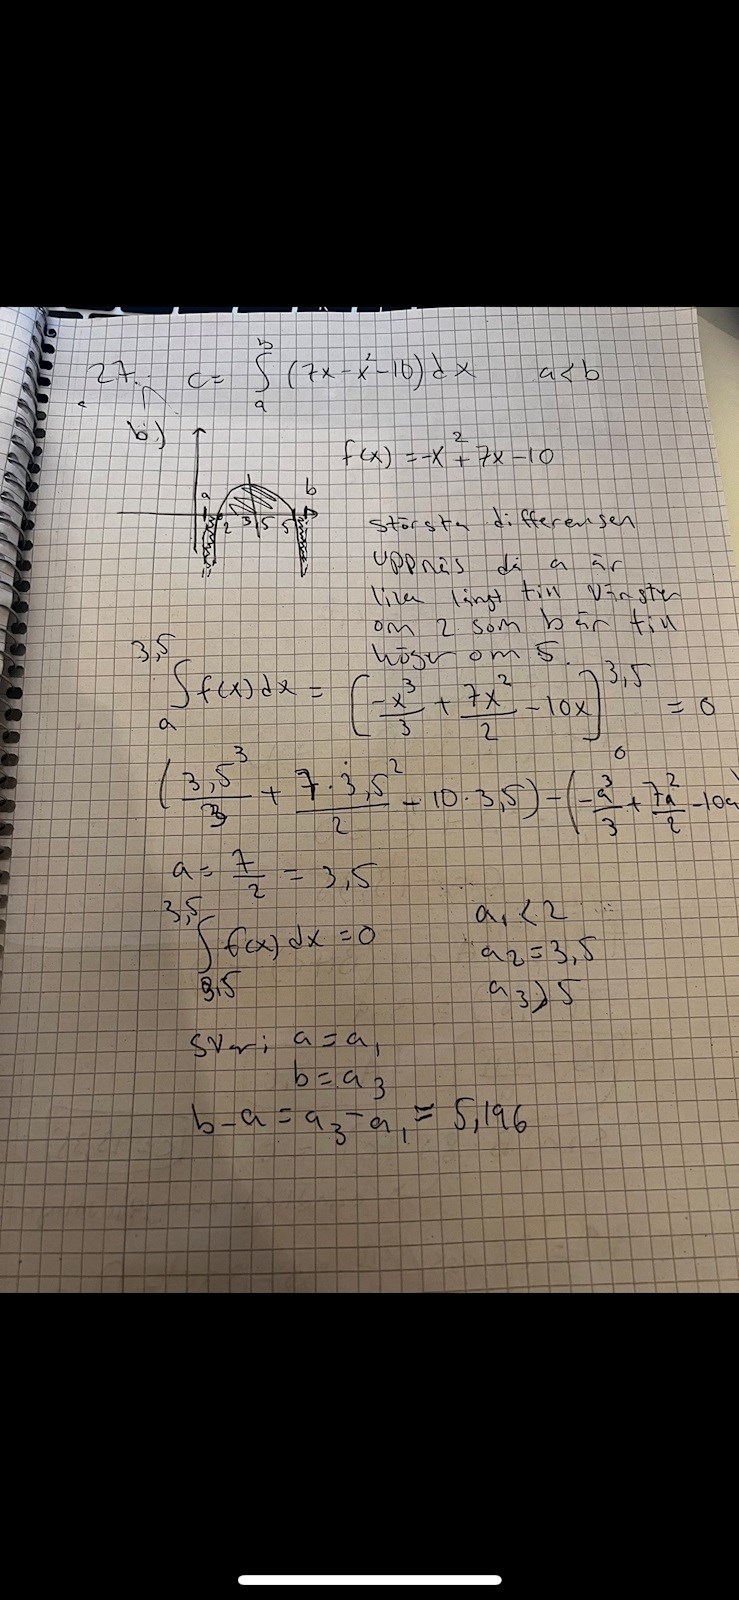 27. C = ∫ₐᵇ (7x - x² - 10) dx a < b
b.)
f(x) = -x² + 7x - 10
a b
2 3,5 5
största differensen
uppnås då a är
lika långt till vänster
om 2 som b är till
höger om 5.
∫ₐ^3,5 f(x) dx = [-x³/3 + 7x²/2 - 10x]₀^3,5 = 0
(3,5³/3 + 7·3,5²/2 - 10·3,5) - (-a³/3 + 7a²/2 - 10a
a = 7/2 = 3,5
∫_3,5^3,5 f(x) dx = 0
a₁ < 2
a₂ = 3,5
a₃ > 5
Svar: a = a₁
b = a₃
b - a = a₃ - a₁ = 5,196